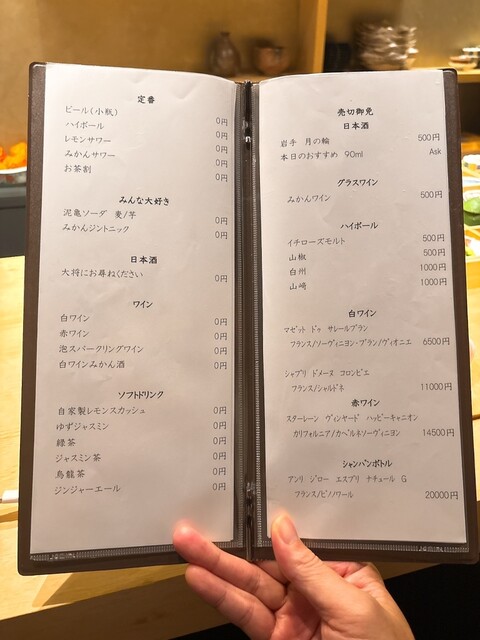 定番
ビール(小瓶) 0円
ハイボール 0円
レモンサワー 0円
みかんサワー 0円
お茶割 0円
みんな大好き
泥亀ソーダ 麦/芋 0円
みかんジントニック 0円
日本酒
大将にお尋ねください 0円
ワイン
白ワイン 0円
赤ワイン 0円
泡スパークリングワイン 0円
白ワインみかん酒 0円
ソフトドリンク
自家製レモンスカッシュ 0円
ゆずジャスミン 0円
緑茶 0円
ジャスミン茶 0円
烏龍茶 0円
ジンジャーエール 0円
売切御免
日本酒
岩手 月の輪 500円
本日のおすすめ 90ml Ask
グラスワイン
みかんワイン 500円
ハイボール
イチローズモルト 500円
山椒 500円
白州 1000円
山崎 1000円
白ワイン
マゼット ドゥ サレールブラン
フランス/ソーヴィニヨン・ブラン/ヴィオニエ 6500円
シャブリ ドメーヌ コロンビエ
フランス/シャルドネ 11000円
赤ワイン
スターレーン ヴィンヤード ハッピーキャニオン
カリフォルニア/カベルネソーヴィニヨン 14500円
シャンパンボトル
アンリ ジロー エスプリ ナチュール G
フランス/ピノノワール 20000円